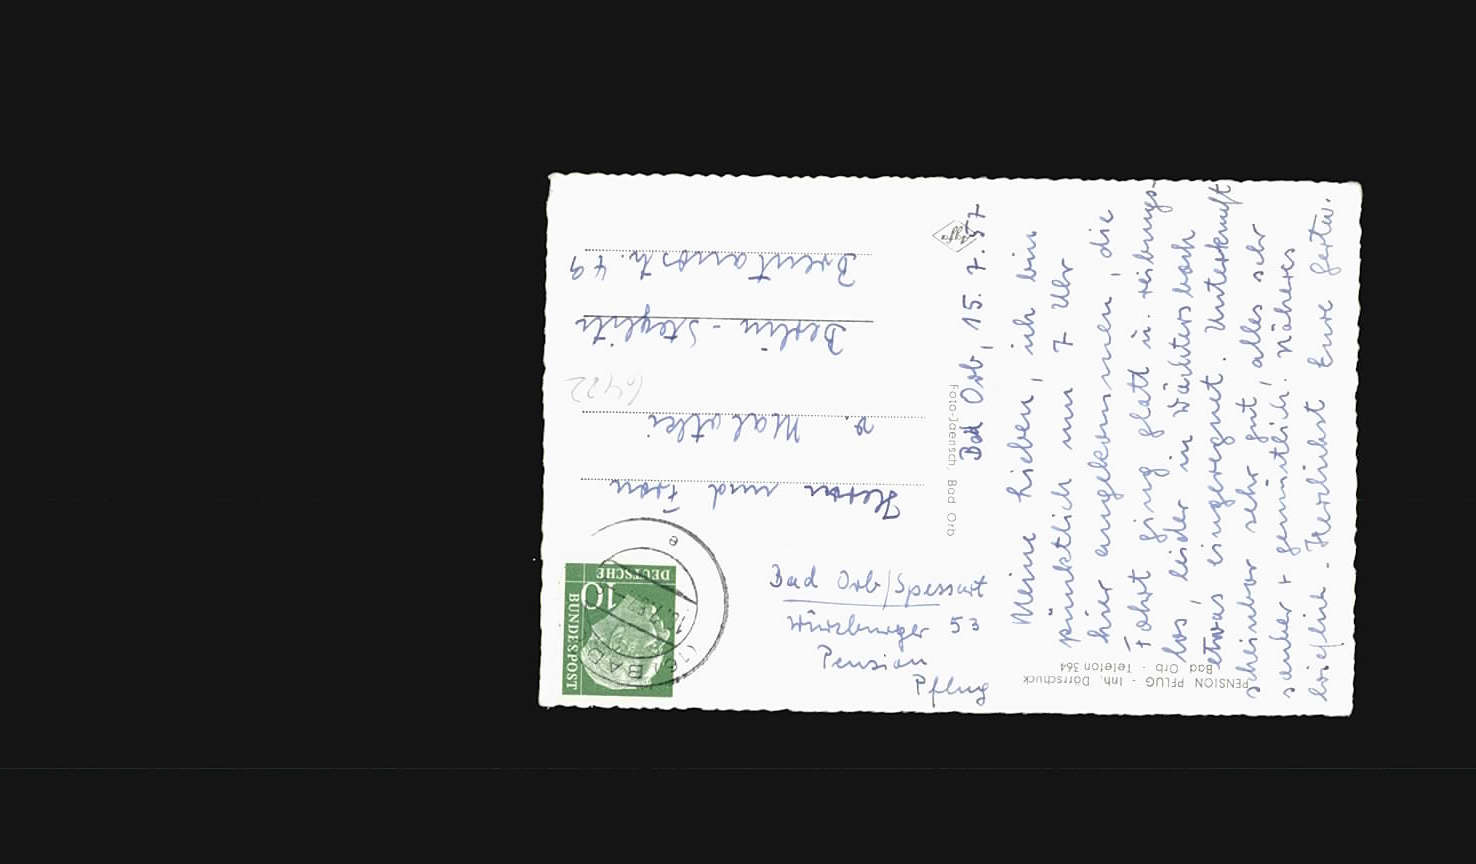 PENSION PFLUG - Inh. Dörrschuck
Bad Orb - Telefon 364
Bad Orb, 15. 7. 57
Meine Lieben, ich bin
pünktlich um 7 Uhr
hier angekommen, die
Fahrt ging glatt u. reibungs-
los, leider in Wächtersbach
etwas eingeregnet. Unterkunft
scheinbar sehr gut, alles sehr
sauber + gemütlich. Näheres
brieflich. Herzlichst Eure
Bad Orb/Spessart
Würzburger 53
Pension
Pflug
Foto-Jaensch, Bad Orb
Agfa
DEUTSCHE
BUNDESPOST
10
(16) BAD
e
Herrn und Frau
v. Malotki
Berlin - Steglitz
Brentanostr. 49
6422